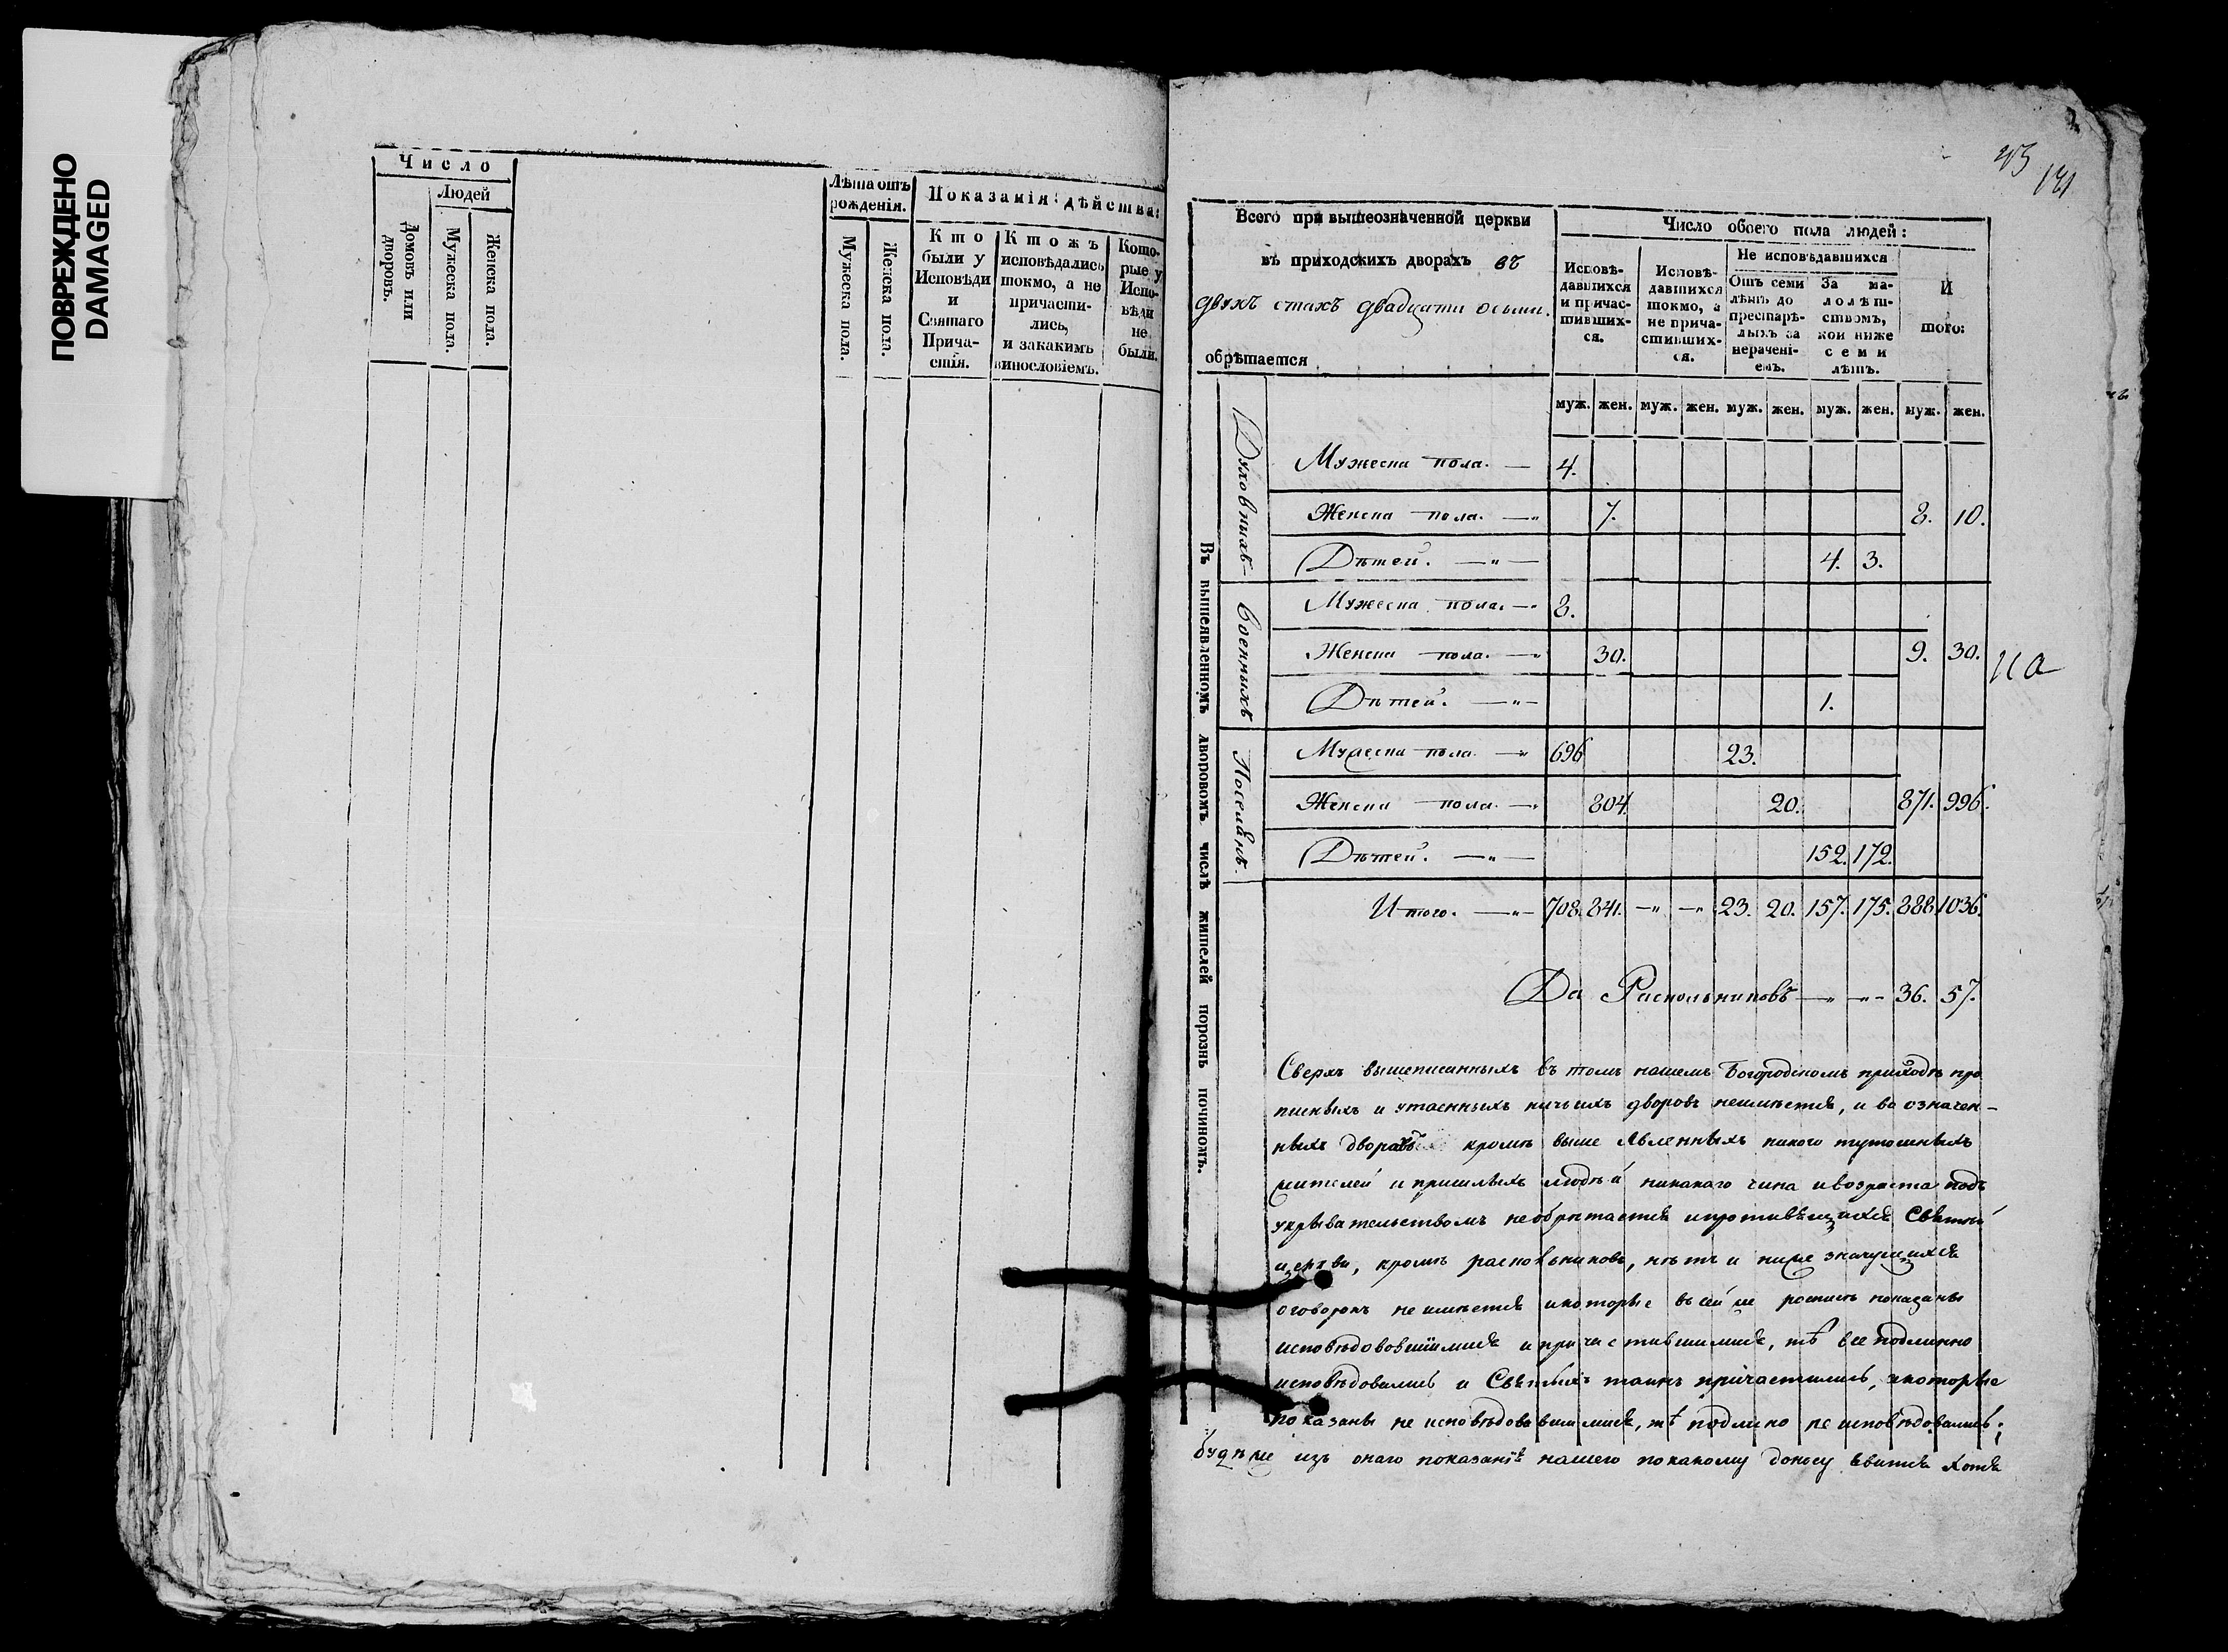 ПОВРЕЖДЕНО
DAMAGED
Число
Людей
Домовъ или дворовъ.
Мужеска пола.
Женска пола.
Лѣта отъ рожденія.
Мужеска пола.
Женска пола.
Показанія дѣйства:
Кто были у Исповѣди и Святаго Причастія.
Ктожъ исповѣдались токмо, а не причастились, и закакимъ винословіемъ.
Которые у Исповѣди не были.
43
121
Всего при вышеозначенной церкви
въ приходскихъ дворахъ въ
двухъ стахъ двадцати осьми.
обрѣтается
Число обоего пола людей:
Исповѣдавшихся и причастившихся.
Исповѣдавшихся токмо, а не причастившихся.
Не исповѣдавшихся
Отъ семи лѣтъ до престарѣлыхъ за нераченіемъ.
За малолѣтствомъ, кои ниже семи лѣтъ.
Итого:
муж. жен. муж. жен. муж. жен. муж. жен. муж. жен.
Въ вышеявленномъ дворовомъ числѣ жителей порознь починомъ.
Духовныхъ
Мужеска пола. — 4.
Женска пола. — 7. 8. 10.
Дѣтей. — 4. 3.
Военныхъ
Мужеска пола. — 8.
Женска пола. — 30. 9. 30.
на
Дѣтей. — 1.
Поселянъ.
Мужеска пола — 696 23.
Женска пола — 804. 20. 871. 996.
Дѣтей. — 152. 172.
Итого. — 708. 841. — — 23. 20. 157. 175. 888. 1036.
Да Раскольниковъ — — 36. 57.
Сверхъ вышеписанныхъ въ томъ нашемъ Богородскомъ приходѣ про
писныхъ и утаенныхъ ничьихъ дворовъ неимѣется, и во означен-
ныхъ дворахъ кромѣ выше явленныхъ никого тутошныхъ
жителей и пришлыхъ людѣй никакаго чина ивозраста подъ
укрывательствомъ необрѣтается ипротивящихся Святой
церкви, кромѣ раскольниковъ, нѣтъ и ниже значущихся
оговорокъ неимѣется икоторые всей же росписѣ показаны
исповѣдововшимися и причастившимися, тѣ все подлинно
исповѣдовались и Святыхъ таинъ причастились, икоторые
показаны не исповѣдовавшимися, тѣ подлино не исповѣдовались;
будѣже изъ онаго показанія нашего покакому доносу явится хотя